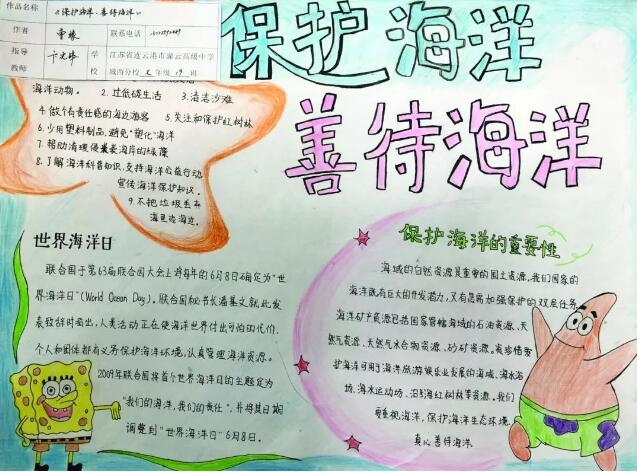 作品名称 《保护海洋、善待海洋》
作者 联系电话
指导教师 学校 江苏省连云港市灌云高级中学
城西分校 七年级 19 班
保护海洋
善待海洋
海洋动物。 2. 过低碳生活 3.清洁沙滩
4. 做个有责任感的海边游客 5.关注和保护红树林
6. 少用塑料制品,避免"塑化"海洋
7. 帮助清理侵袭海岸的绿藻
8. 了解海洋科普知识,支持海洋公益行动
宣传海洋保护知识。
9.不把垃圾丢弃
海里或海边。
世界海洋日
联合国于第63届联合国大会上将每年的6月8日确定为"世
界海洋日"(World Ocean Day)。联合国秘书长潘基文就此发
表致辞时指出,人类活动正在使海洋世界付出可怕的代价,
个人和团体都有义务保护海洋环境,认真管理海洋资源。
2009年联合国将首个世界海洋日的主题定为
"我们的海洋,我们的责任",并将其日期
调整到"世界海洋日"6月8日。
保护海洋的重要性
海域的自然资源是重要的国土资源,我们国家的
海洋既有巨大的开发潜力,又有急需加强保护的双层任务
海洋矿产资源包括国家管辖海域的石油资源、天
然气资源、天然气水合物资源、砂矿资源。我珍惜
护海洋可用于海洋旅游娱乐业发展的海域、海水浴
场、海水运动场、沿海红树林等资源。我们
要重视海洋,保护海洋生态环境,
真心善待海洋